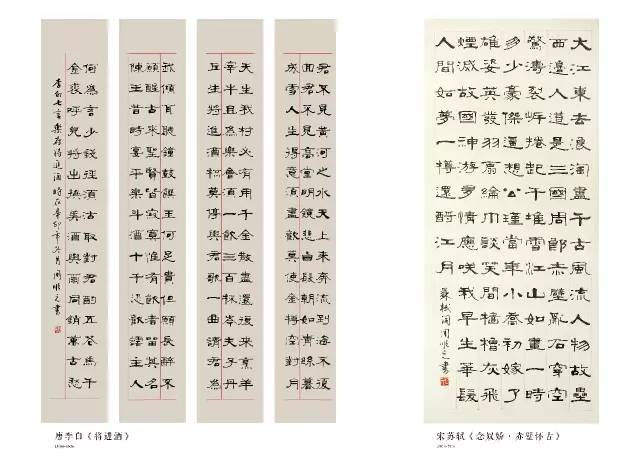 君不見黃河之水天上來奔流到海不復
回君不見高堂明鏡悲白髮朝如青絲暮
成雪人生得意須盡歡莫使金樽空對月
天生我材必有用千金散盡還復來烹羊
宰牛且為樂會須一飲三百杯岑夫子丹
丘生將進酒杯莫停與君歌一曲請君為
我傾耳聽鐘鼓饌玉何足貴但願長醉不
願醒古來聖賢皆寂寞惟有飲者留其名
陳王昔時宴平樂斗酒十千恣歡謔主人
何為言少錢徑須沽取對君酌五花馬千
金裘呼兒將出換美酒與爾同銷萬古愁
李白七言樂府將進酒 時在辛卯年冬月周之書
唐李白《将进酒》
大江東去浪淘盡千古風流人物故壘
西邊人道是三國周郎赤壁亂石穿空
驚濤裂岸捲起千堆雪江山如畫一時
多少豪傑遙想公瑾當年小喬初嫁了
雄姿英發羽扇綸巾談笑間檣櫓灰飛
煙滅故國神游多情應笑我早生華髮
人間如夢一樽還酹江月
蘇軾詞周之書
宋苏轼《念奴娇·赤壁怀古》